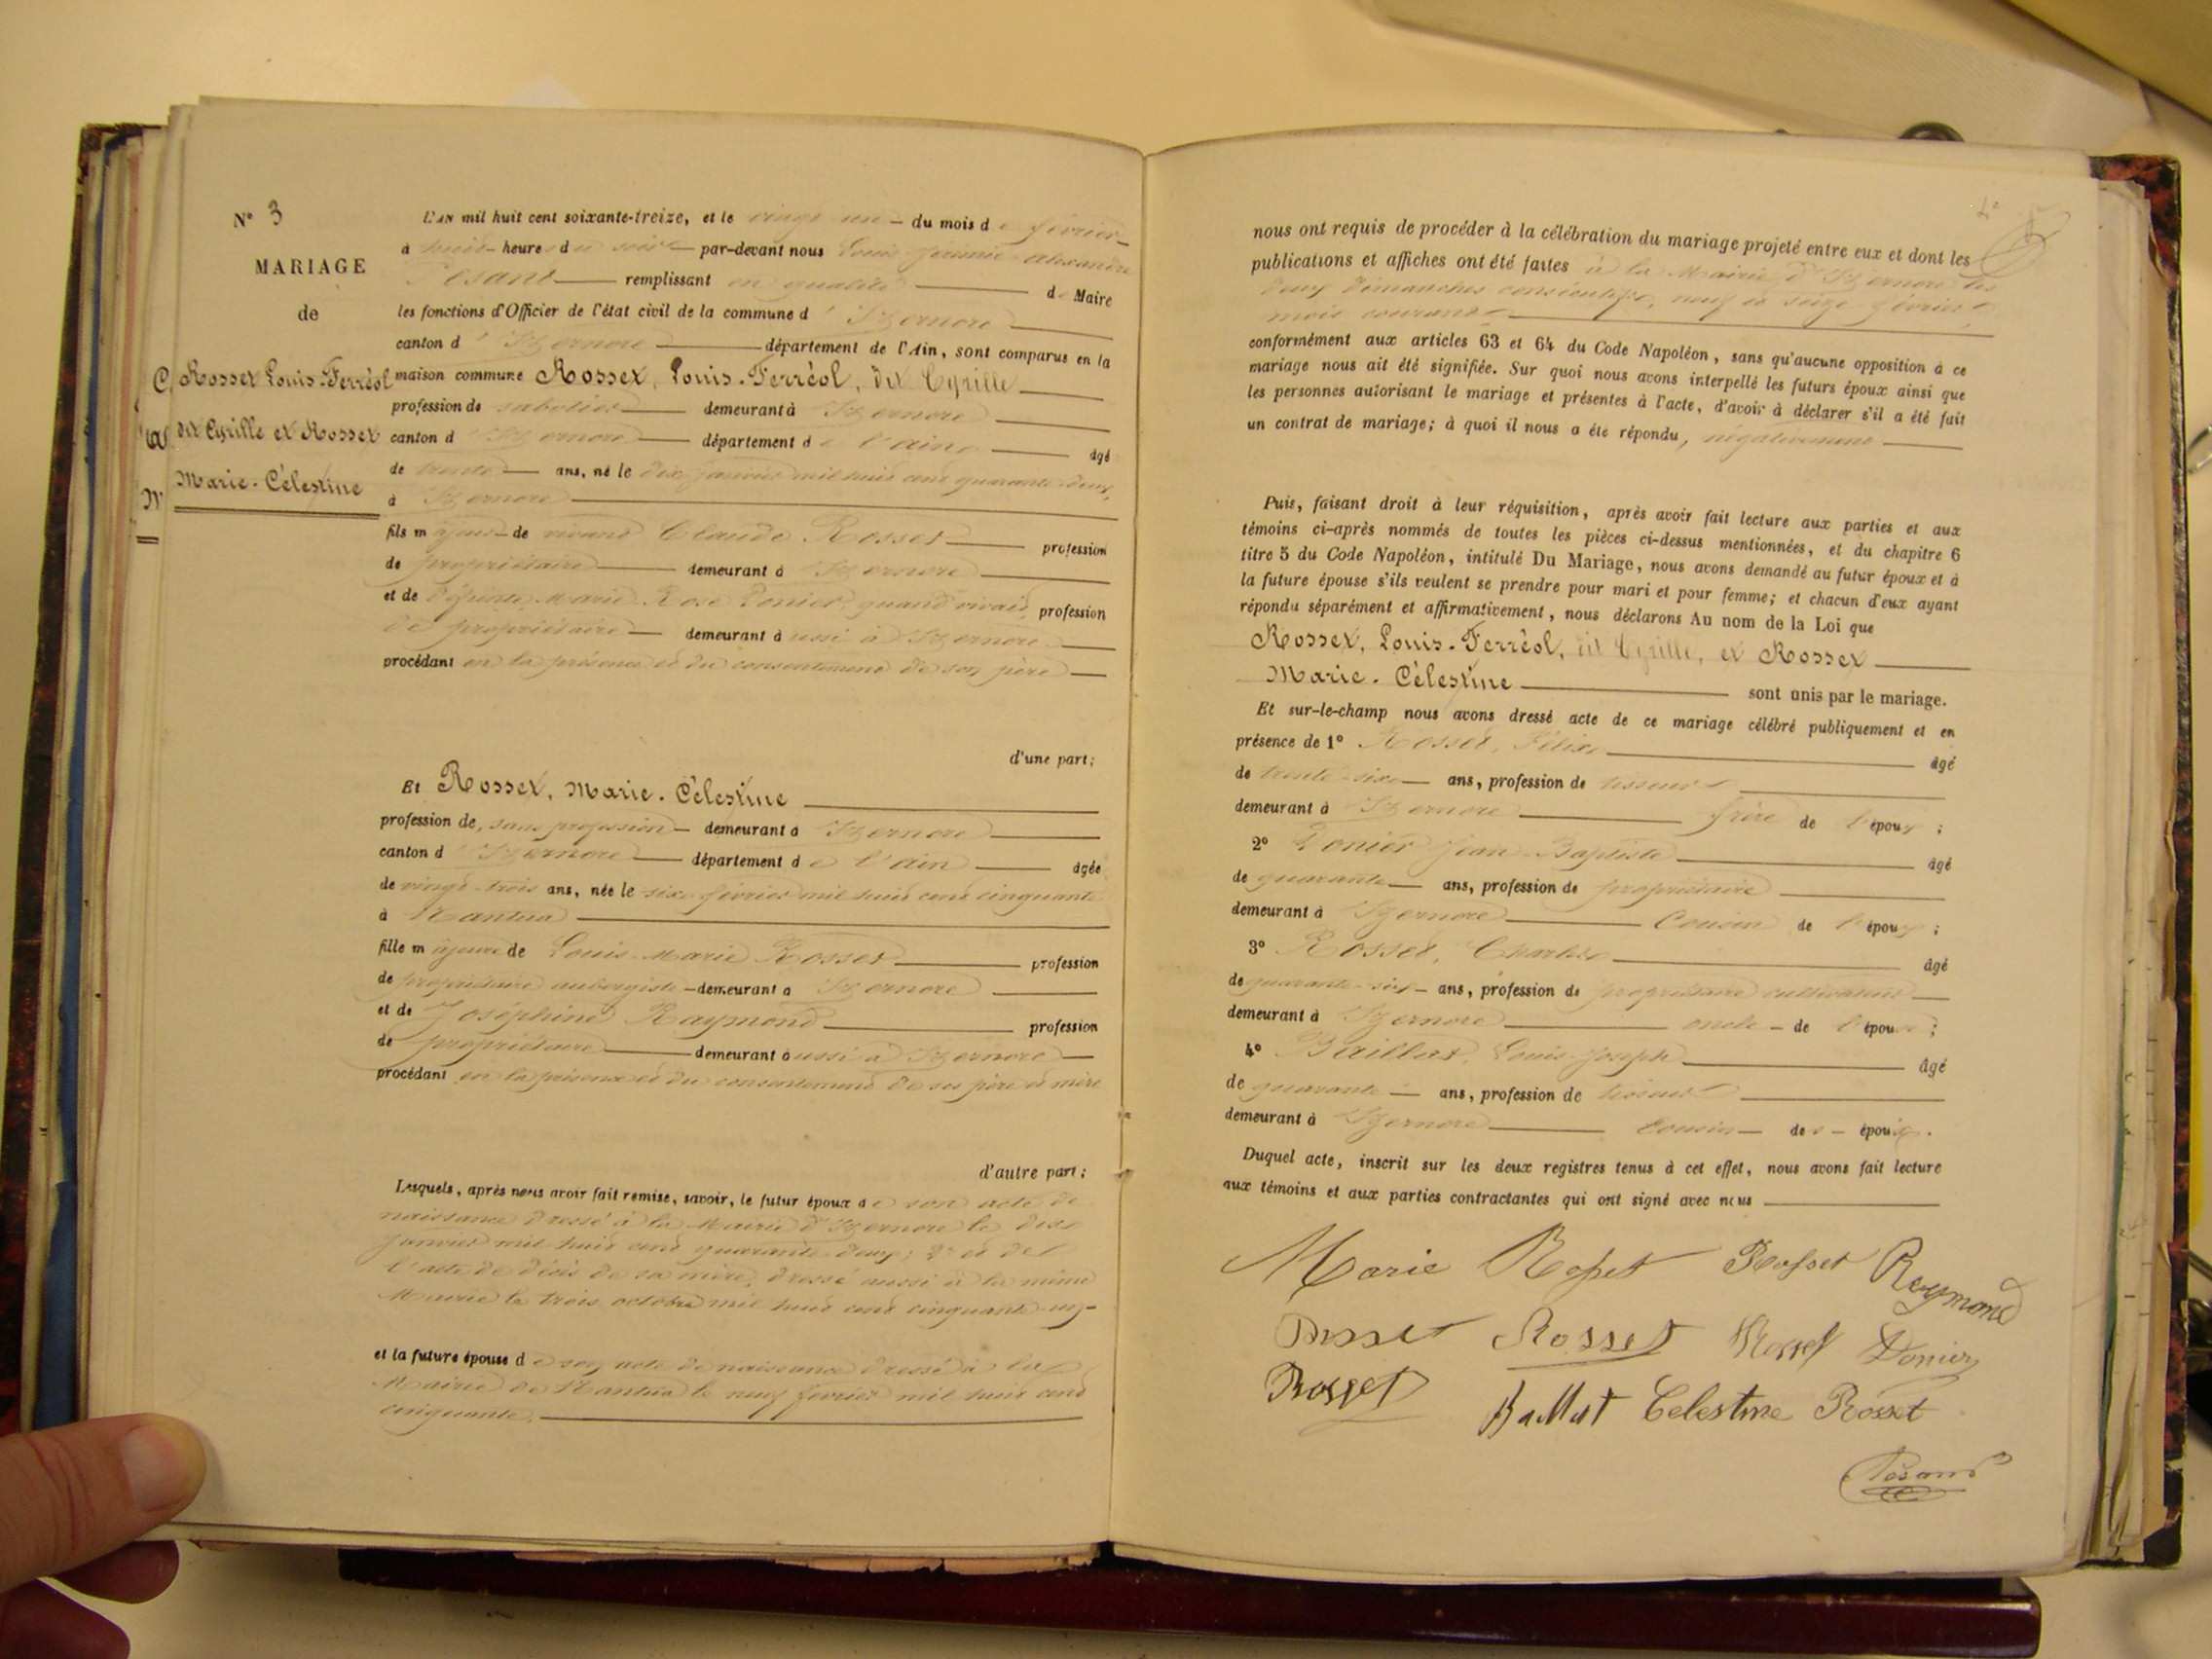 N° 3
MARIAGE
de
Rosset Louis-Ferréol
dit Cyrille et Rosset
Marie-Célestine
L'AN mil huit cent soixante-treize, et le vingt un du mois de février
à huit heures du soir par-devant nous Louis Jérémie Alexandre
remplissant en qualité de Maire
les fonctions d'Officier de l'état civil de la commune d'Izernore
canton d'Izernore département de l'Ain, sont comparus en la
maison commune Rosset, Louis-Ferréol, dit Cyrille
profession de sabotier demeurant à Izernore
canton d'Izernore département de l'ain âgé
de trente ans, né le dix janvier mil huit cent quarante-deux,
à Izernore
fils majeur de vivant Claude Rosset profession
de propriétaire demeurant à Izernore
et de défunte Marie Rose quand vivait, profession
de propriétaire demeurant aussi à Izernore
procédant en la présence et du consentement de son père
d'une part;
Et Rosset, Marie-Célestine
profession de, sans profession demeurant à Izernore
canton d'Izernore département de l'ain âgée
de vingt-trois ans, née le six février mil huit cent cinquante
à Nantua
fille majeure de Louis-Marie Rosset profession
de propriétaire aubergiste demeurant à Izernore
et de Joséphine Raymond profession
de propriétaire demeurant aussi à Izernore
procédant en la présence et du consentement de ses père et mère
d'autre part;
Lesquels, après nous avoir fait remise, savoir, le futur époux de son acte de
naissance dressé à la Mairie d'Izernore le dix
janvier mil huit cent quarante-deux; 2° et de
l'acte de décès de sa mère, dressé aussi à la même
Mairie le trois octobre mil huit cent cinquante-un
et la future épouse de son acte de naissance dressé à la
Mairie de Nantua le neuf février mil huit cent
cinquante.
nous ont requis de procéder à la célébration du mariage projeté entre eux et dont les
publications et affiches ont été faites à la Mairie d'Izernore les
deux dimanches consécutifs, neuf et seize février
mois courant
conformément aux articles 63 et 64 du Code Napoléon, sans qu'aucune opposition à ce
mariage nous ait été signifiée. Sur quoi nous avons interpellé les futurs époux ainsi que
les personnes autorisant le mariage et présentes à l'acte, d'avoir à déclarer s'il a été fait
un contrat de mariage; à quoi il nous a été répondu, négativement
Puis, faisant droit à leur réquisition, après avoir fait lecture aux parties et aux
témoins ci-après nommés de toutes les pièces ci-dessus mentionnées, et du chapitre 6
titre 5 du Code Napoléon, intitulé Du Mariage, nous avons demandé au futur époux et à
la future épouse s'ils veulent se prendre pour mari et pour femme; et chacun d'eux ayant
répondu séparément et affirmativement, nous déclarons Au nom de la Loi que
Rosset, Louis-Ferréol, dit Cyrille, et Rosset
Marie-Célestine sont unis par le mariage.
Et sur-le-champ nous avons dressé acte de ce mariage célébré publiquement et en
présence de 1° Rosset, Félix âgé
de trente-six ans, profession de tisseur
demeurant à Izernore frère de l'époux;
2° Jean-Baptiste âgé
de quarante ans, profession de propriétaire
demeurant à Izernore Cousin de l'époux;
3° Rosset, Charles âgé
de quarante-six ans, profession de propriétaire cultivateur
demeurant à Izernore oncle de l'épouse;
4° Louis-Joseph âgé
de quarante ans, profession de
demeurant à Izernore Cousin de
Duquel acte, inscrit sur les deux registres tenus à cet effet, nous avons fait lecture
aux témoins et aux parties contractantes qui ont signé avec nous
Marie Rosset Rosset Reymond
Rosset Rosset Rosset
Rosset Célestine Rosset